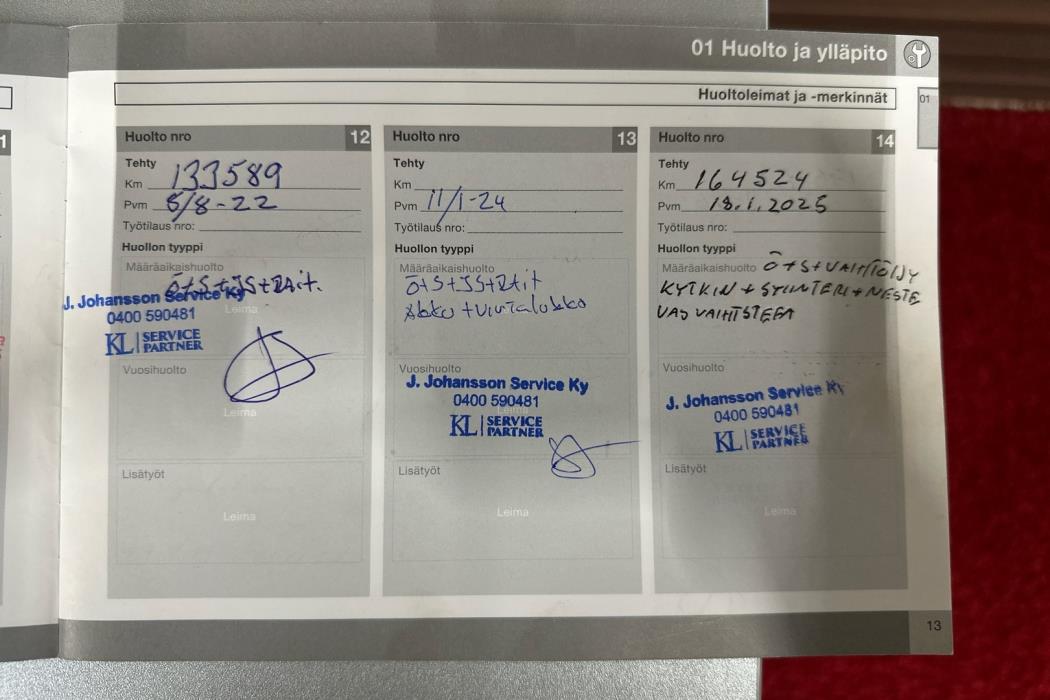 01 Huolto ja ylläpito
Huoltoleimat ja -merkinnät
01
1
Huolto nro 12
Tehty
Km 133589
Pvm 5/8-22
Työtilaus nro:
Huollon tyyppi
Määräaikaishuolto
Ö+S+IS+RAit.
J. Johansson Service Ky
0400 590481
KL SERVICE PARTNER
Leima
Vuosihuolto
Leima
Lisätyöt
Leima
Huolto nro 13
Tehty
Km
Pvm 11/1-24
Työtilaus nro:
Huollon tyyppi
Määräaikaishuolto
Ö+S+IS+RAit
Akku +
Vuosihuolto
J. Johansson Service Ky
0400 590481
Leima
KL SERVICE PARTNER
Lisätyöt
Leima
Huolto nro 14
Tehty
Km 164524
Pvm 18.1.2025
Työtilaus nro:
Huollon tyyppi
Määräaikaishuolto Ö+S+VAIHTÖLJY
KYTKIN + + NESTE
VAIHTSTEFA
Vuosihuolto
J. Johansson Service Ky
0400 590481
KL SERVICE PARTNER
Lisätyöt
Leima
13